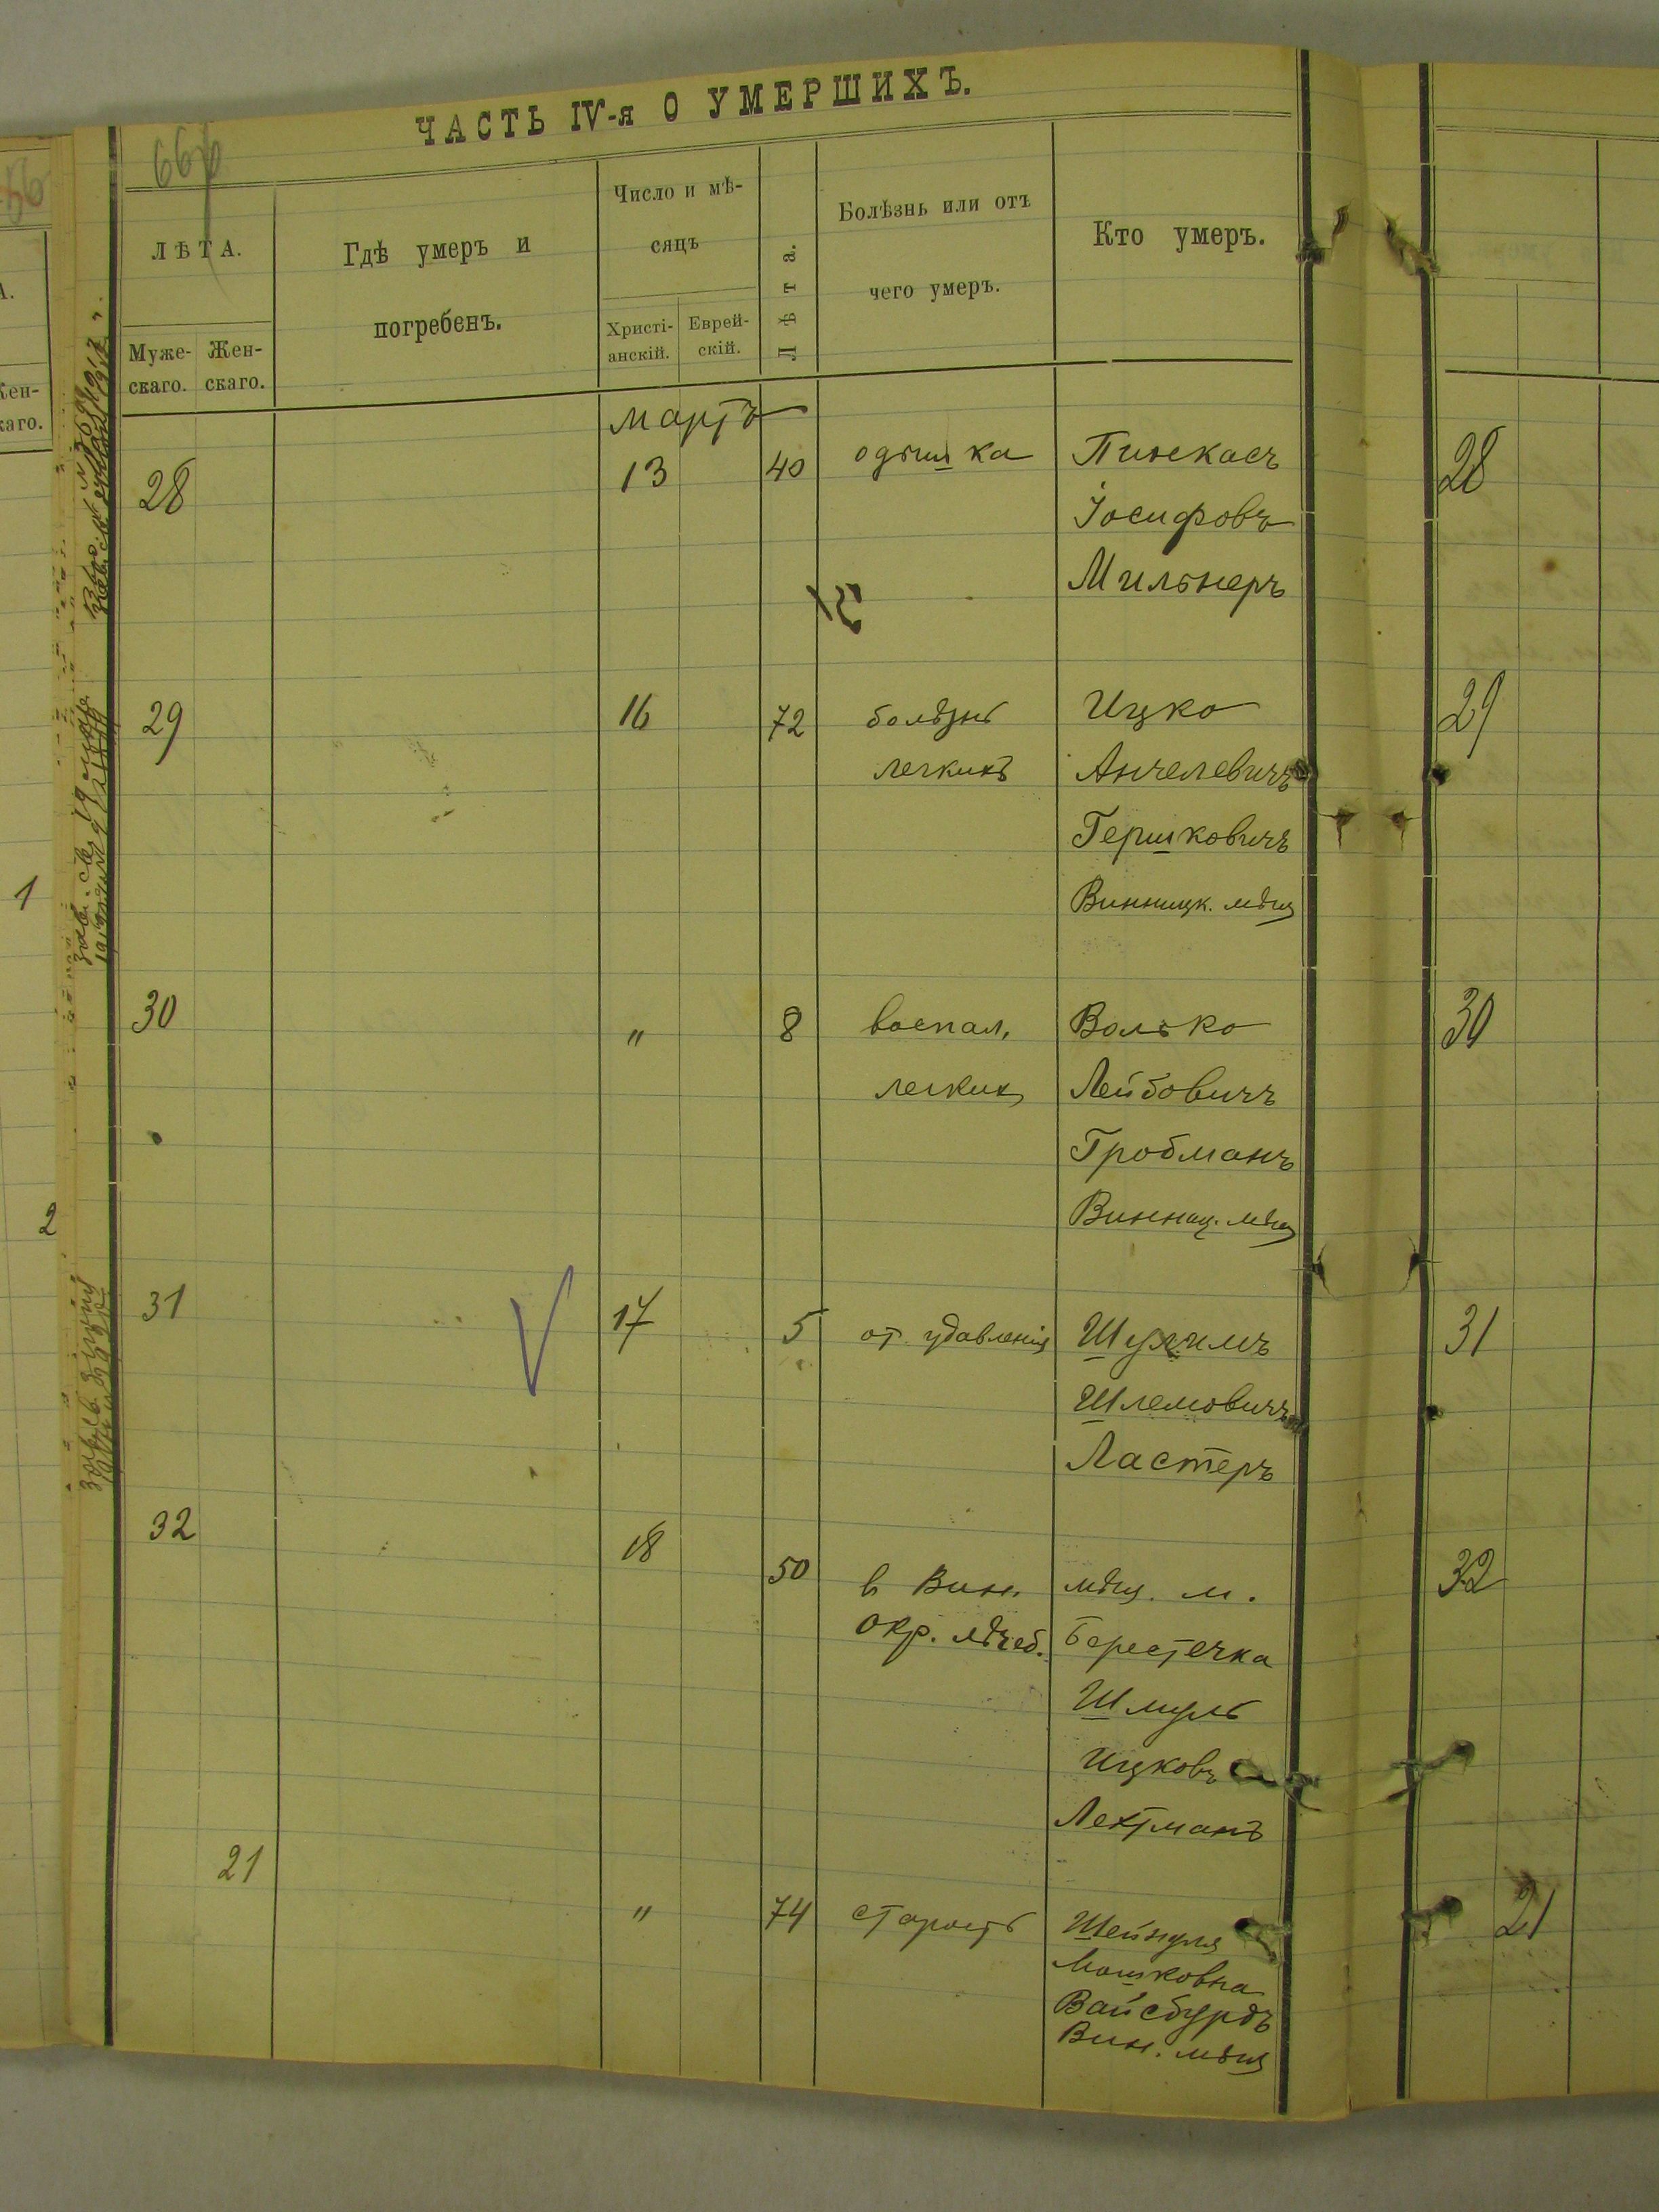 ЧАСТЬ IV-я О УМЕРШИХЪ.
66
ЛѢТА.
Гдѣ умеръ и
погребенъ.
Число и мѣ-
сяцъ
Лѣта.
Болѣзнь или отъ
чего умеръ.
Кто умеръ.
Муже-
скаго.
Жен-
скаго.
Христі-
анскій.
Еврей-
скій.
Мартъ
28 13 40 одышка Пинкасъ 28
Іосифовъ
Мильнеръ
29 16 72 болѣзнь Ицко 29
легкихъ Анчелевичъ
Гершковичъ
Винницк. мѣщ
30 " 8 воспал. Волько 30
легких Лейбовичъ
Гробманъ
Винниц. мѣщ
31 17 5 от удавленія Шулимъ 31
Шлемовичъ
Ластеръ
32 18 50 в Вин. мѣщ. м. 32
Окр. лѣчеб. Берестечка
Шмуль
Ицковъ
Лехтманъ
21 " 74 старость Шейндля 21
Мошковна
Вайсбурдъ
Вин. мѣщ
Жен-
каго.
1
2